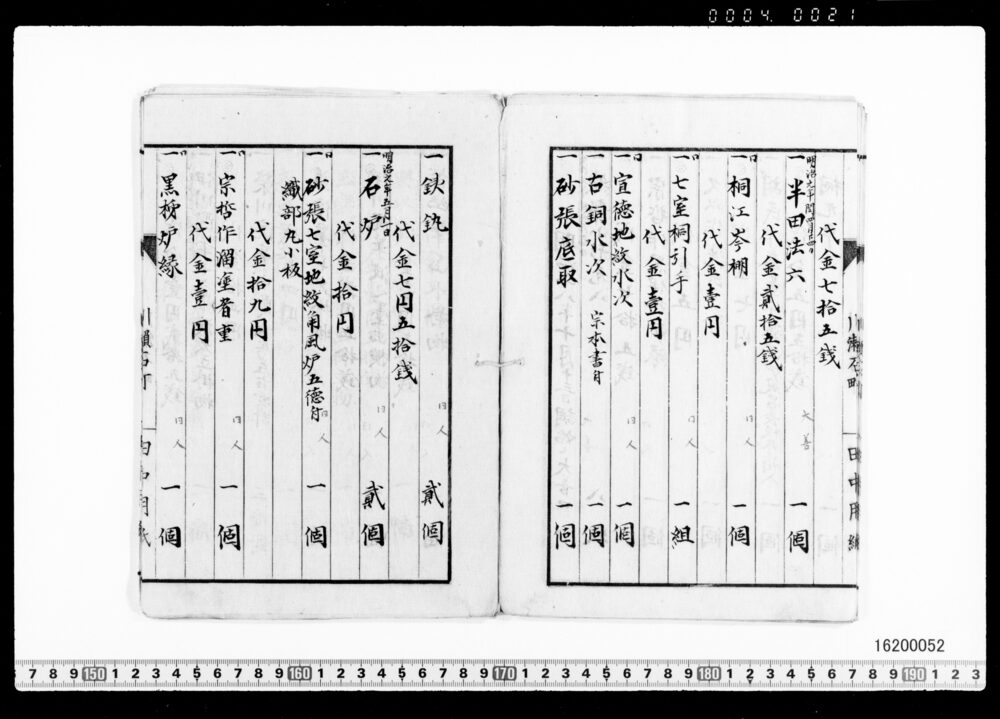 0004 0021
代金七拾五銭
明治九年四月廿四日
一半田法六 大善 一個
代金貳拾五銭
同
一桐江岑棚 同人 一個
代金壹円
同
一七室桐引手 一組
代金壹円
同
一宣徳地紋水次 同人 一個
一古銅水次 宗本書付 一個
一砂張底取 一個
一鈥釻 同人 貳個
代金七円五拾銭
明治九年五月一日
一石炉 同人 貳個
代金拾円
同
一砂張七室地紋角風炉五徳付 同人 一個
織部丸小板
代金拾九円
同
一宗哲作溜塗香重 同人 一個
代金壹円
同
一黒柿炉縁 同人 一個
16200052
7 8 9 150 1 2 3 4 5 6 7 8 9 160 1 2 3 4 5 6 7 8 9 170 1 2 3 4 5 6 7 8 9 180 1 2 3 4 5 6 7 8 9 190 1 2 3